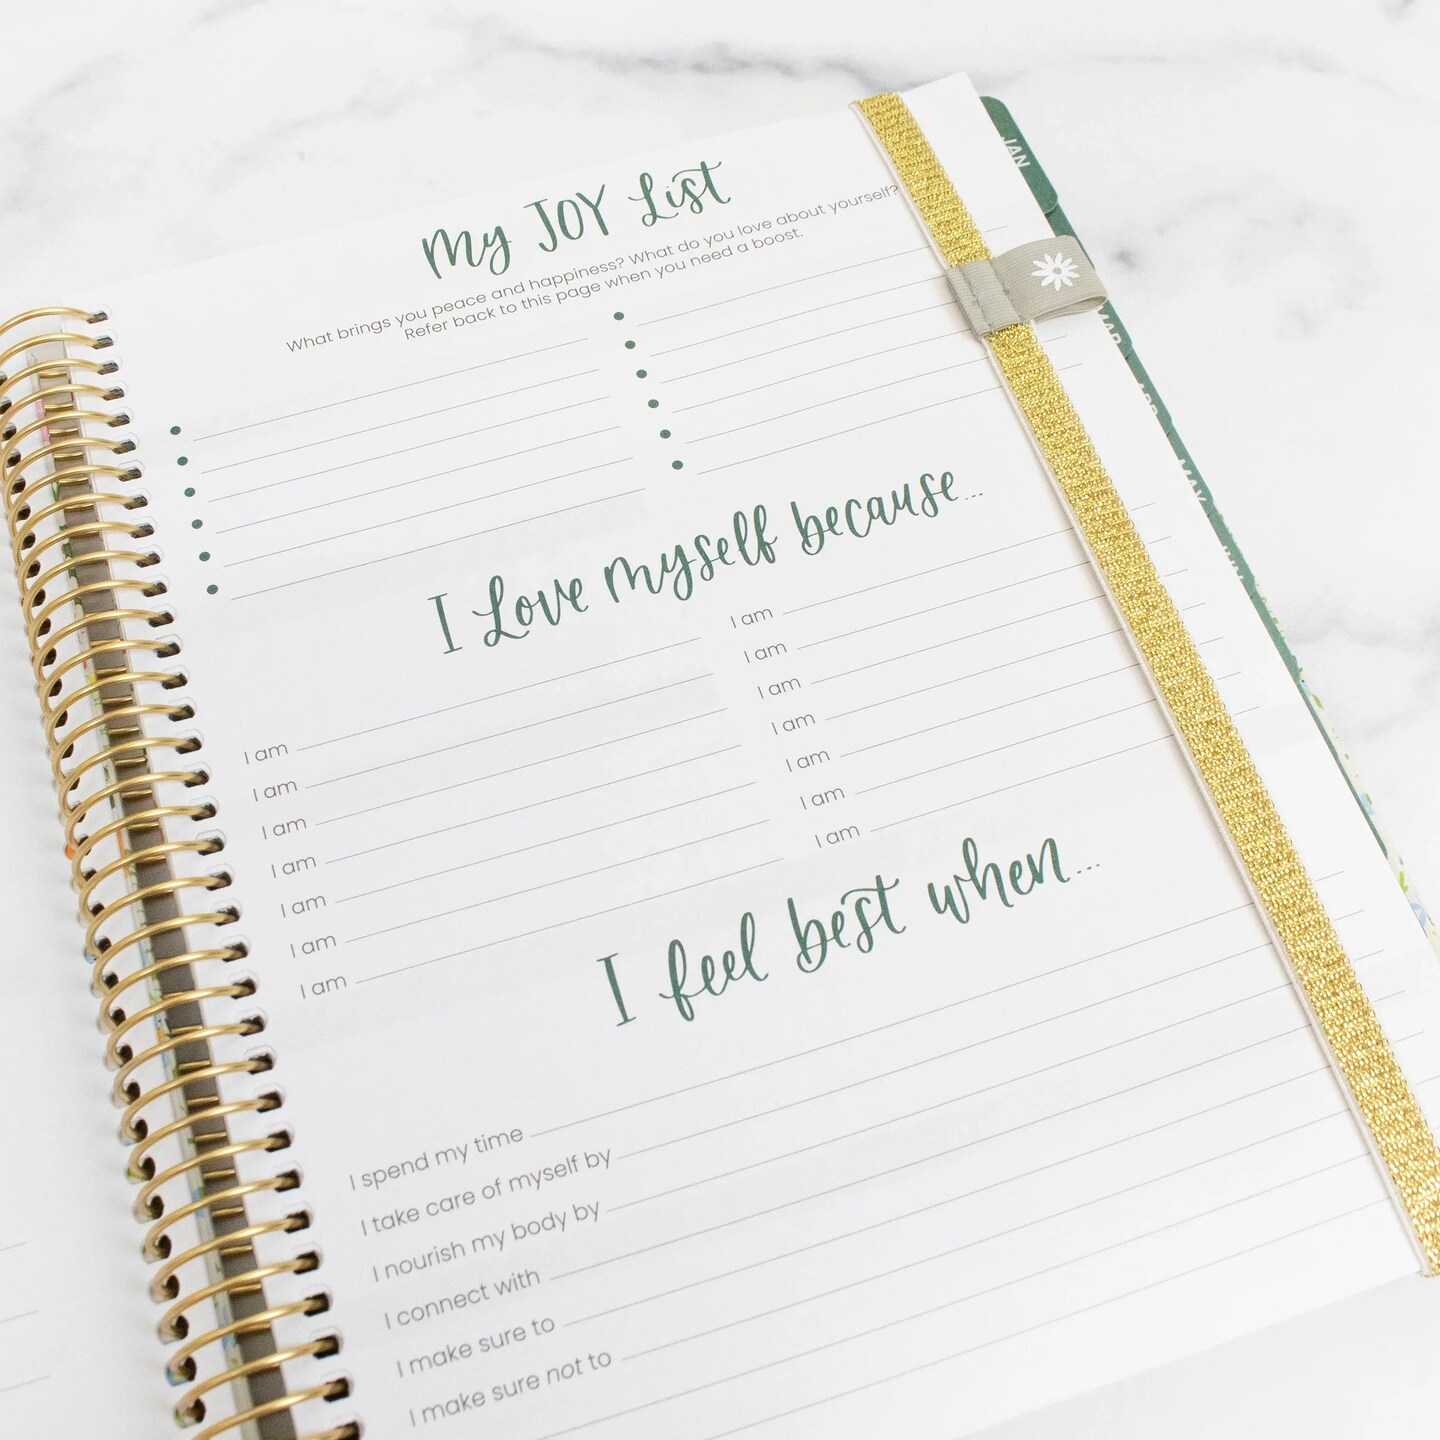 My JOY List
What brings you peace and happiness? What do you love about yourself?
Refer back to this page when you need a boost.
I Love myself because...
I am
I am
I am
I am
I am
I am
I am
I am
I am
I am
I am
I am
I am
I am
I feel best when...
I spend my time
I take care of myself by
I nourish my body by
I connect with
I make sure to
I make sure not to
JAN
MAR
APR
MAY
JUN